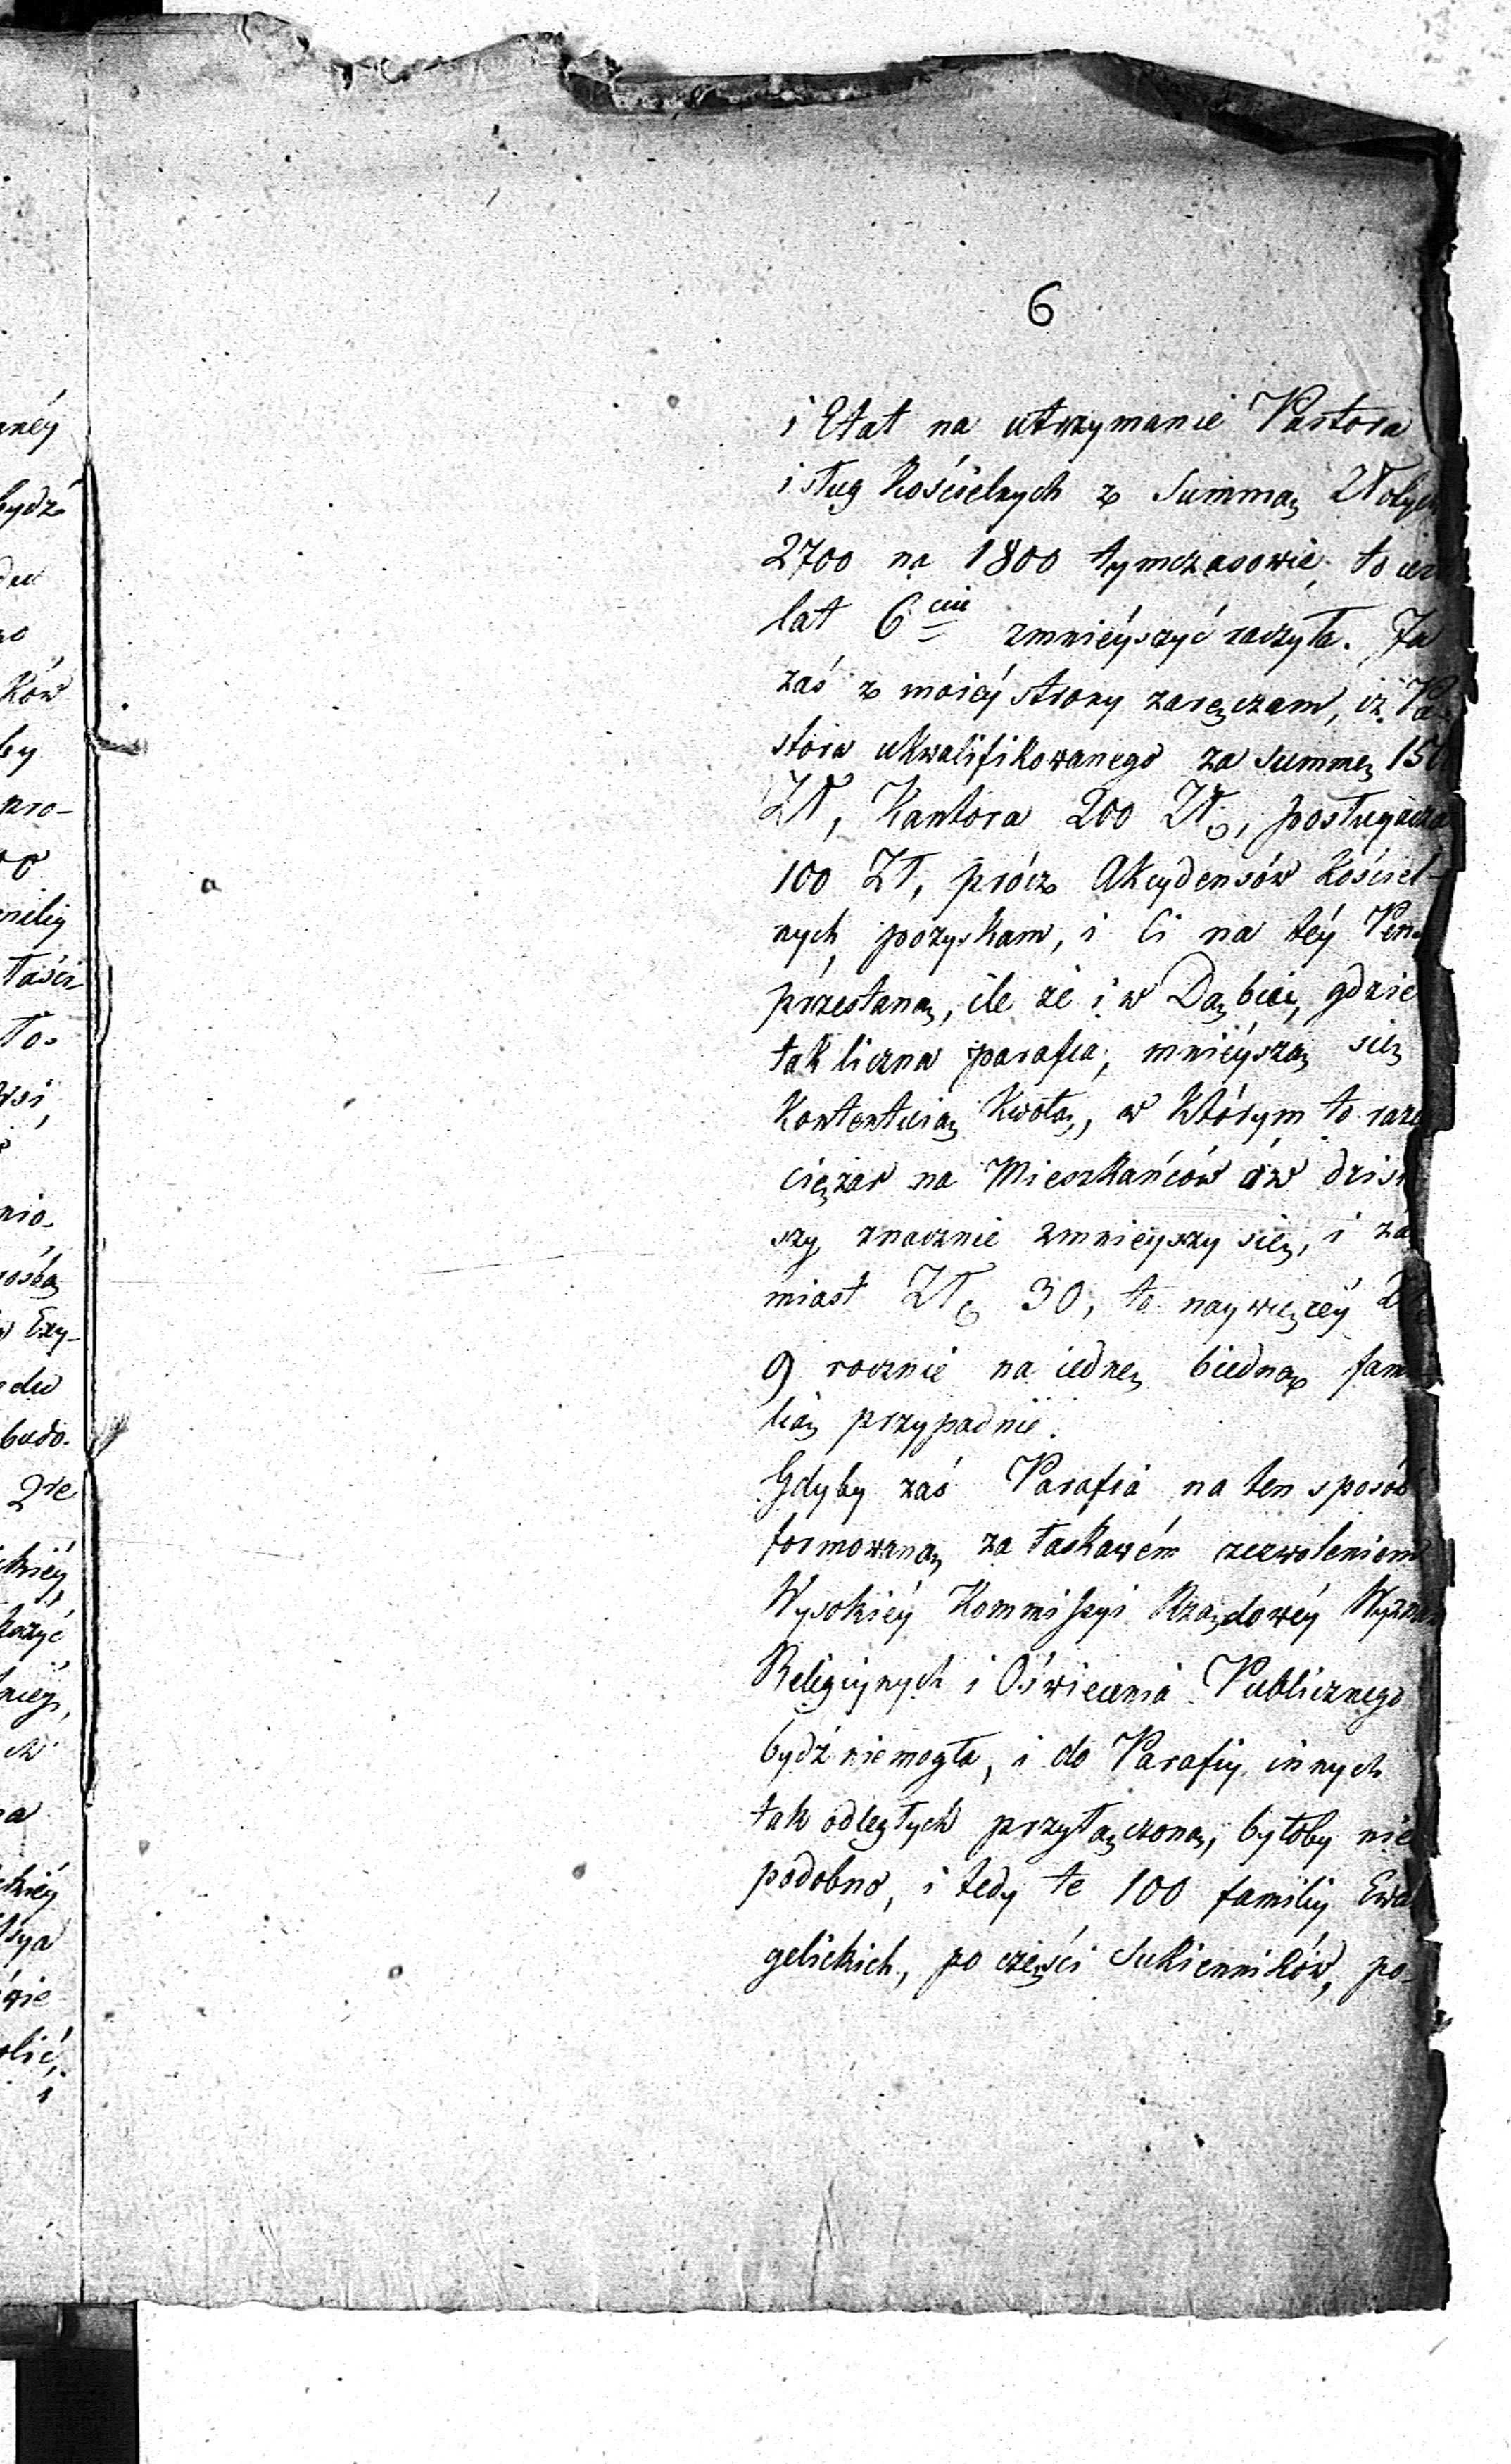 6
i Etat na utrzymanie Pastora
i sług Kościelnych z Summą Złotych
2700 na 1800 tymczasowie, to iest
lat 6ciu zmnieyszyć raczyła. Ja
zaś z moiéy strony zaręczam, iż Pa-
stora ukwalifikowanego za summę 150
Zł, Kantora 200 Zł, posługacza
100 Zł, prócz Akcydensów Kościel-
nych, pozyskam, i Ci na téy Pen
przestaną, ile że i w Dąbiu, gdzie
tak liczna parafia, mnieyszą się
Kontentuią Kwotą, w którym to raz
ciężar na Mieszkańców ów dzisi
szy znacznie zmnieyszy się, i za
miast Zł 30, to naywięcéy Zł
9 rocznie na iednę biedną fam
lią przypadnie.
Gdyby zaś Parafia na ten sposób
formowaną za łaskawém zezwoleniem
Wysokiéy Kommissyi Rządowéy Wyznań
Religiynych i Oświecenia Publicznego
bydź niemogła, i do Parafiy innych
tak odległych przyłączoną, byłoby nie
podobno, i tedy te 100 familiy Ewa
gelickich, po części Sukienników, po-
néy
bydź
du
ków
by
pro-
miliy
łości
ło-
wsi,
nio,
rośbą
Exy-
edu
budo-
2re
kiéy
łożyć
niéy,
ch
na
kiéy
ssya
wie
olić,
i